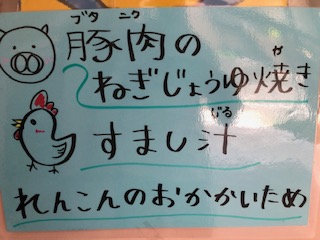 ブタ ニク
豚肉の
や
ねぎじょうゆ焼き
じる
すまし汁
れんこんのおかかいため